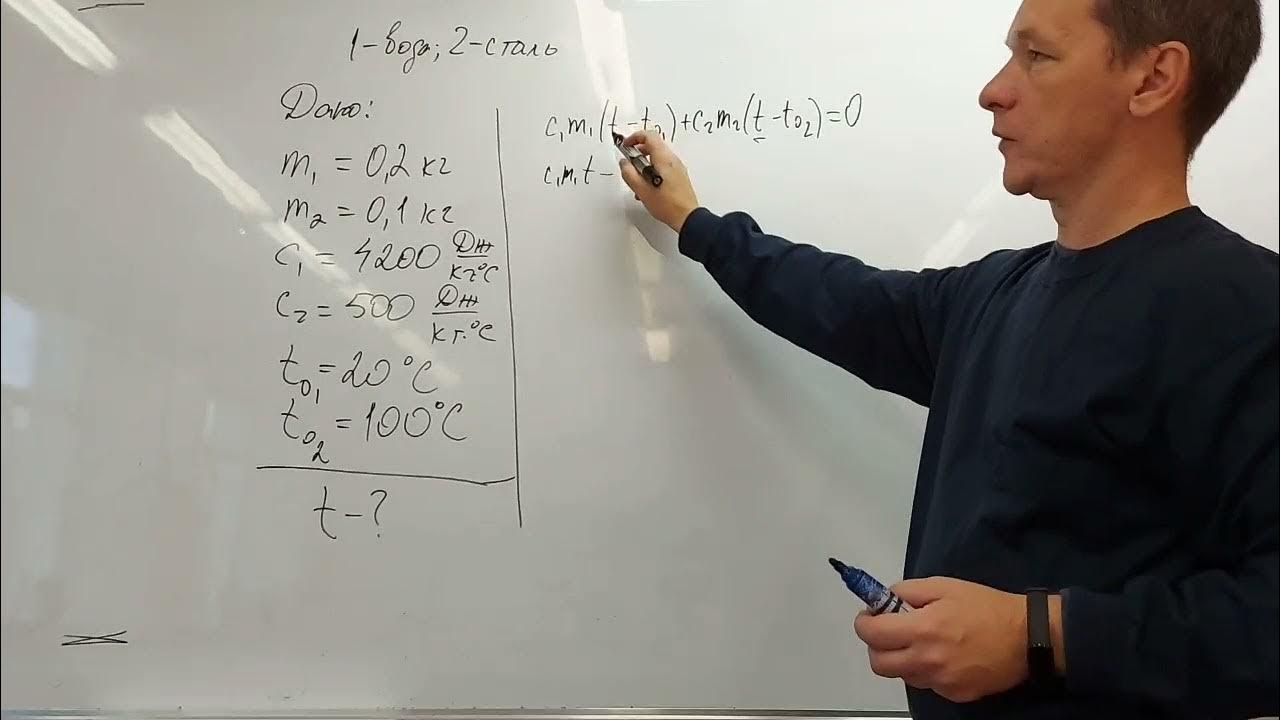 1-вода; 2-сталь
Дано:
m₁ = 0,2 кг
m₂ = 0,1 кг
c₁ = 4200 Дж/кг°C
c₂ = 500 Дж/кг·°C
t₀₁ = 20°C
t₀₂ = 100°C
t - ?
c₁m₁(t - t₀₁) + c₂m₂(t - t₀₂) = 0
c₁m₁t -